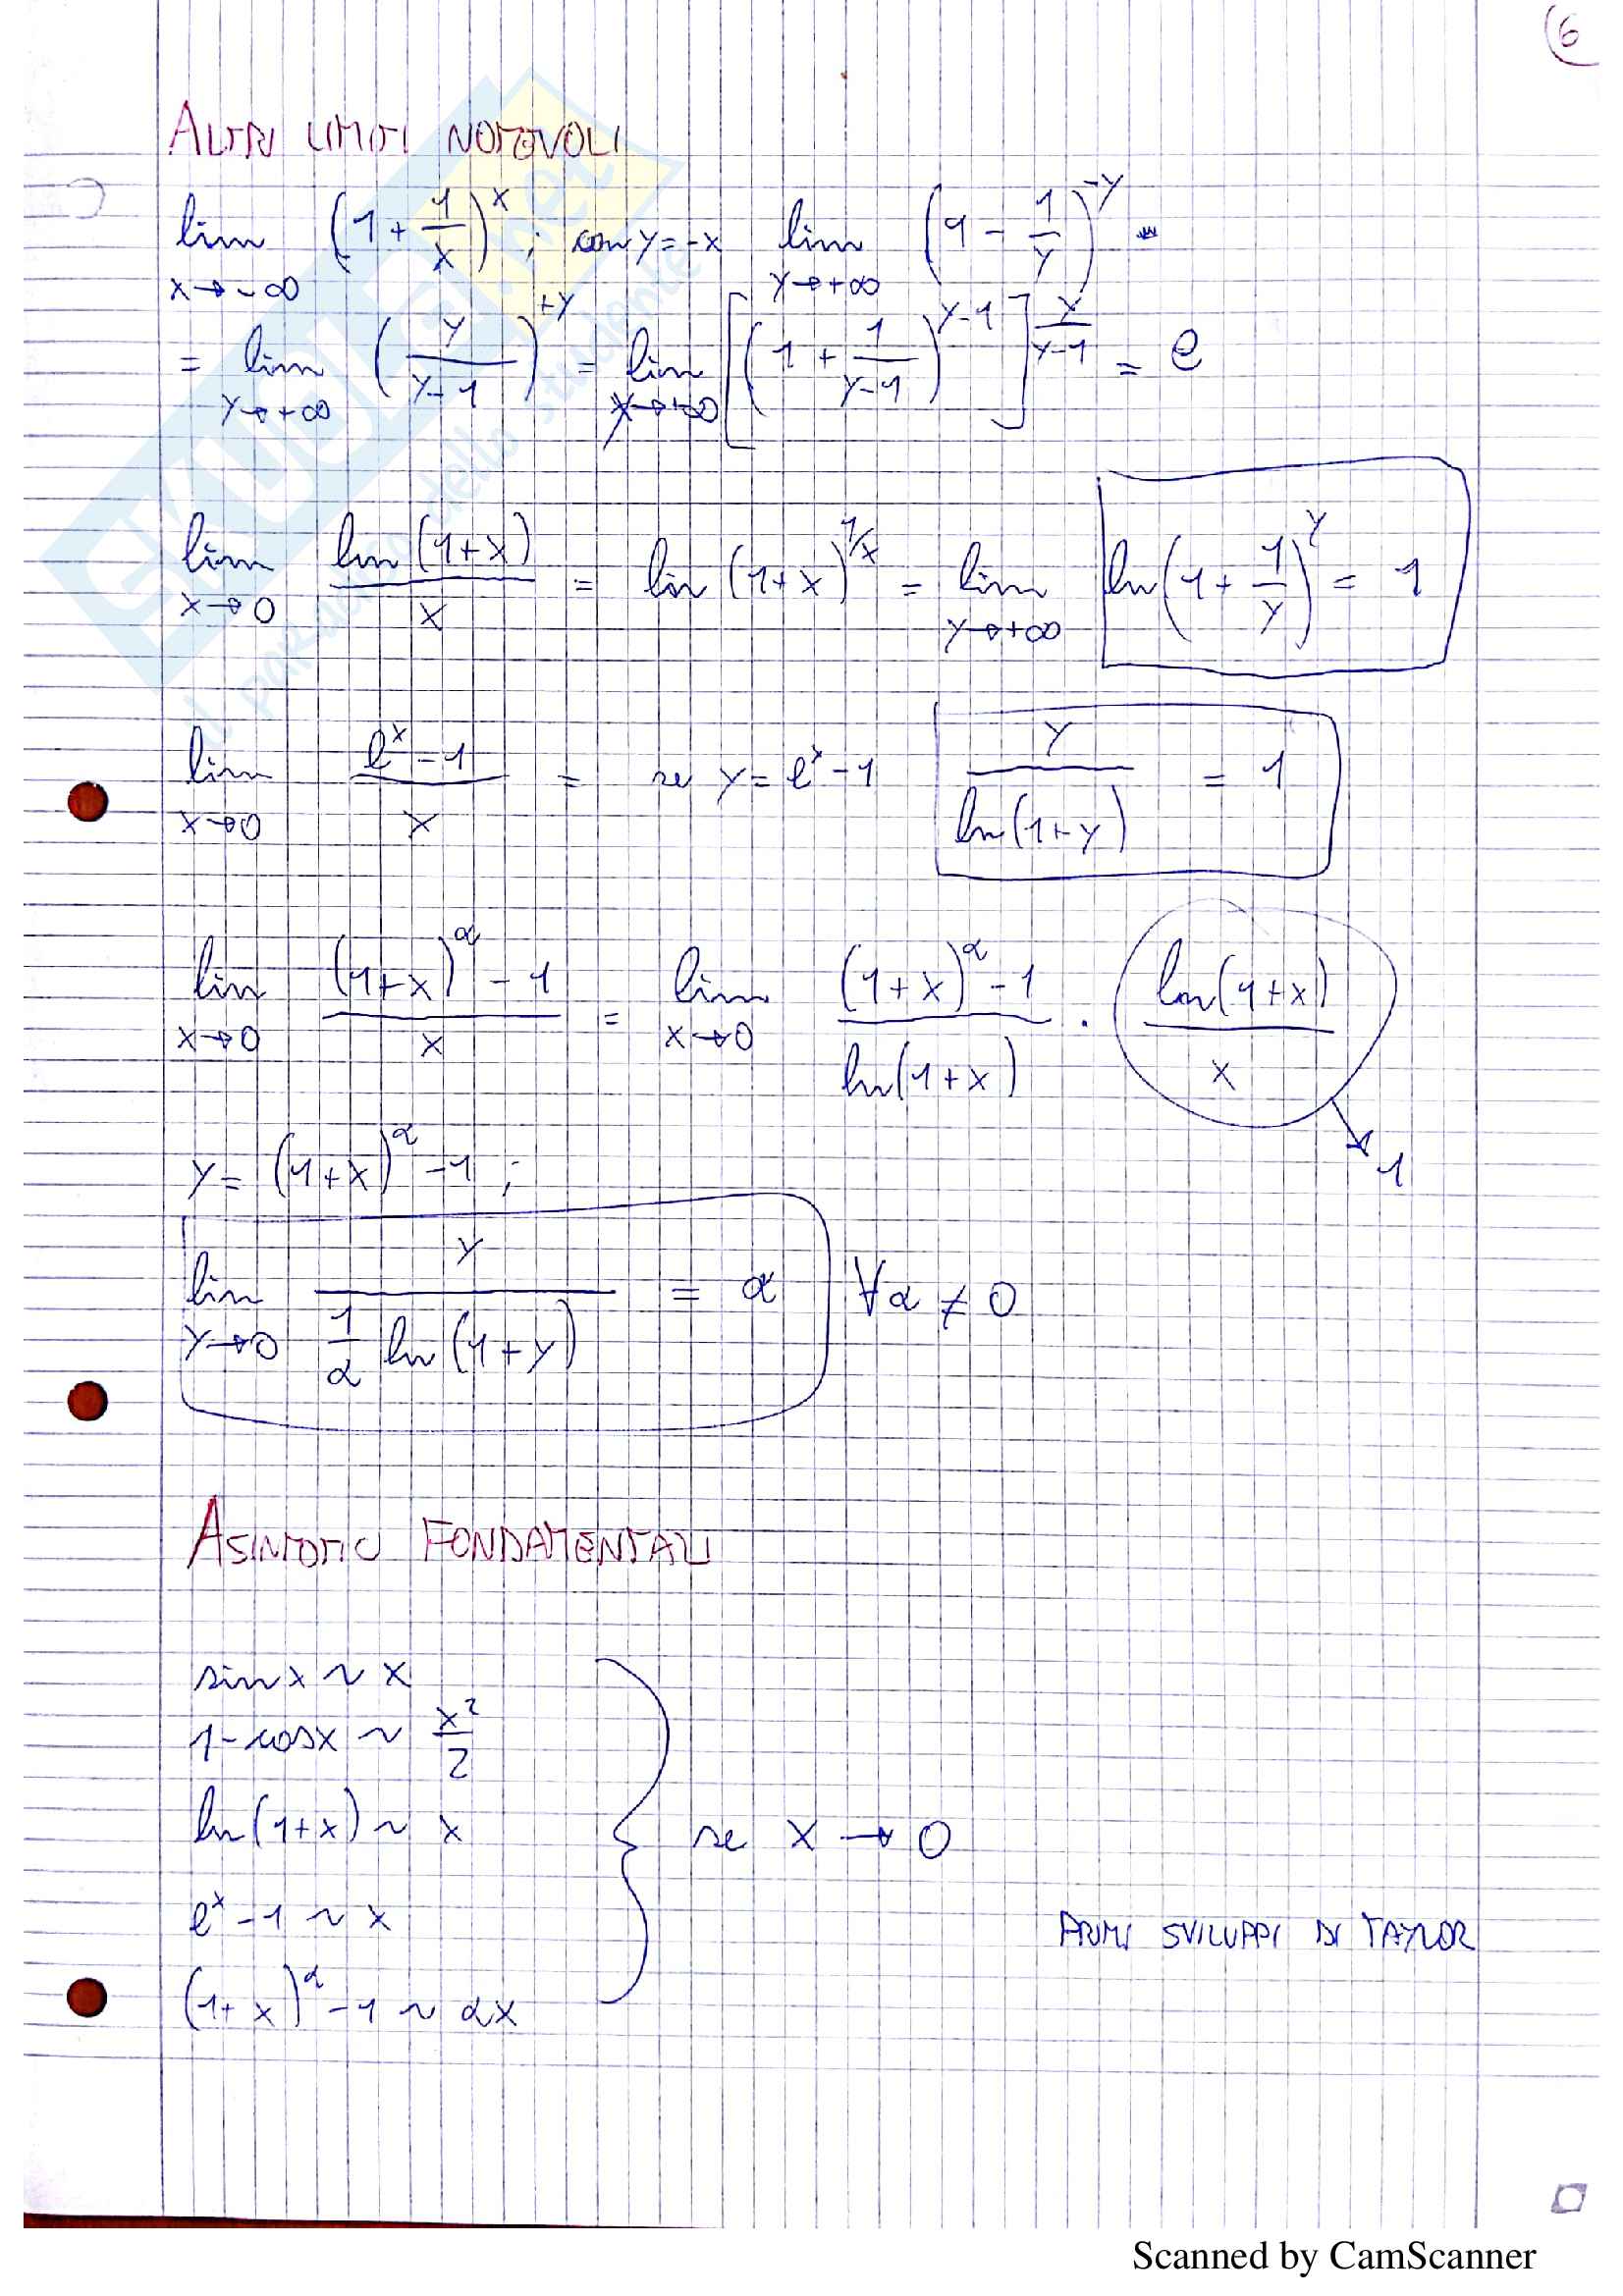 6
ALTRI LIMITI NOTEVOLI
lim x→-∞ (1 + 1/x)^x ; con y = -x lim y→+∞ (1 - 1/y)^-y =
= lim y→+∞ (y/(y-1))^+y = lim y→+∞ [(1 + 1/(y-1))^(y-1)]^(y/(y-1)) = e
lim x→0 ln(1+x)/x = ln(1+x)^1/x = lim y→+∞ ln(1 + 1/y)^y = 1
lim x→0 (e^x - 1)/x = se y = e^x - 1 y/ln(1+y) = 1
lim x→0 ((1+x)^α - 1)/x = lim x→0 ((1+x)^α - 1)/ln(1+x) · ln(1+x)/x → 1
y = (1+x)^α - 1 ;
lim y→0 y/(1/α ln(1+y)) = α ∀α ≠ 0
ASINTOTICI FONDAMENTALI
sin x ~ x
1 - cos x ~ x²/2
ln(1+x) ~ x
se x → 0
e^x - 1 ~ x
PRIMI SVILUPPI DI TAYLOR
(1+x)^α - 1 ~ αx
SKUOLA.net
il paradiso dello studente
Scanned by CamScanner